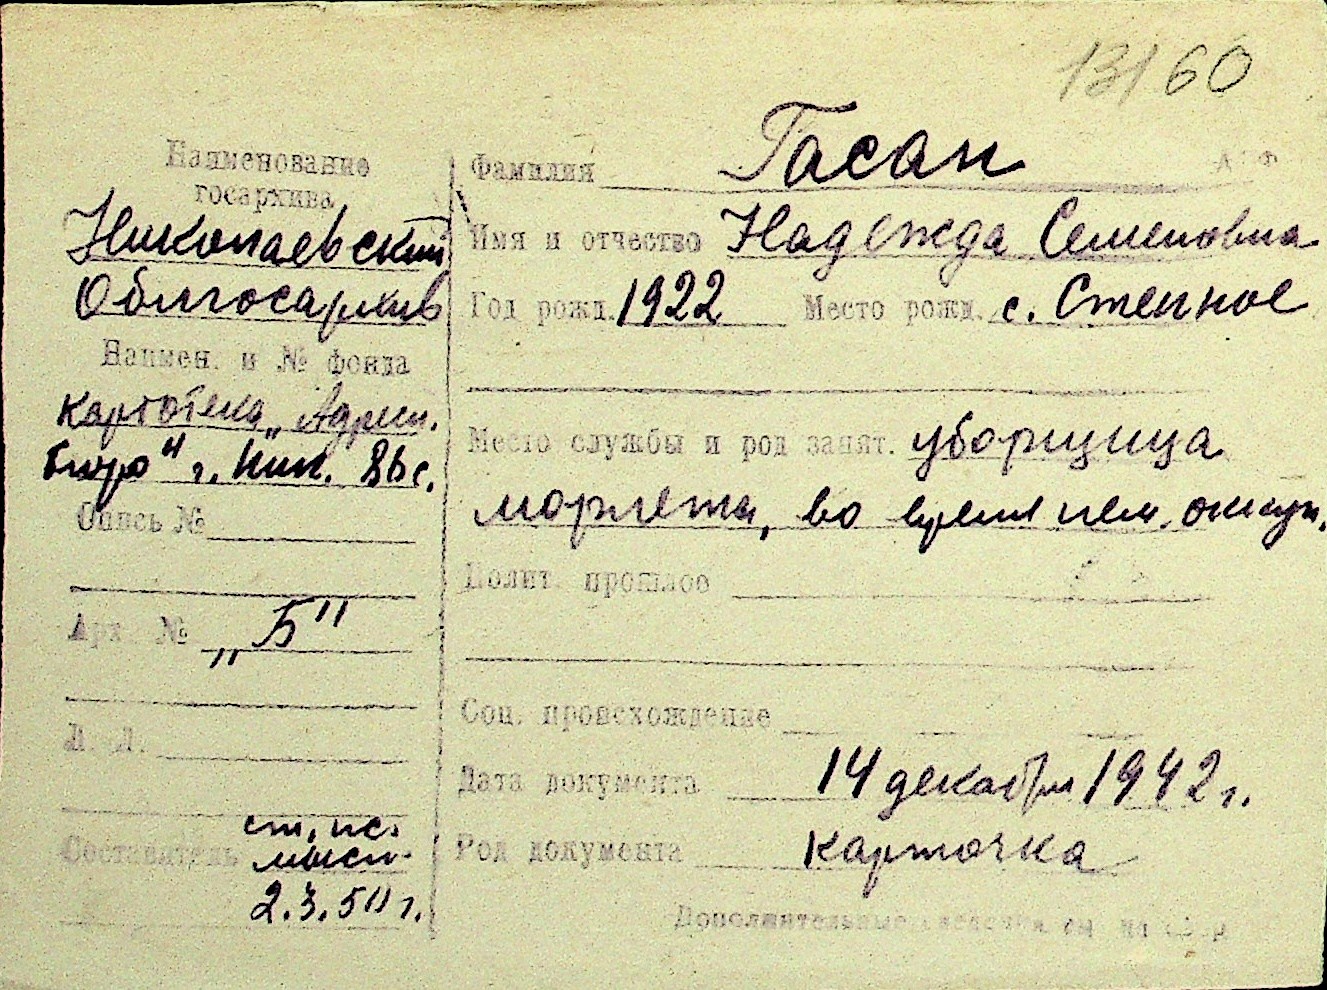 13160
Наименование
госархива
Николаевский
Облгосархив
Наимен. и № фонда
картотека „Адресн.
бюро" г. Ник.
Опись №
Арх. №
„Б"
Л. Л.
Составитель
ст. нс.
2.3.50 г.
Фамилия Гасан
Имя и отчество Надежда Семеновна
Год рожд. 1922 Место рожд. с. Степное
Место службы и род занят. уборщица
морлета, во время нем. оккуп.
Полит. прошлое
Соц. происхождение
Дата документа 14 декабря 1942 г.
Род документа карточка
Дополнительные сведения см на